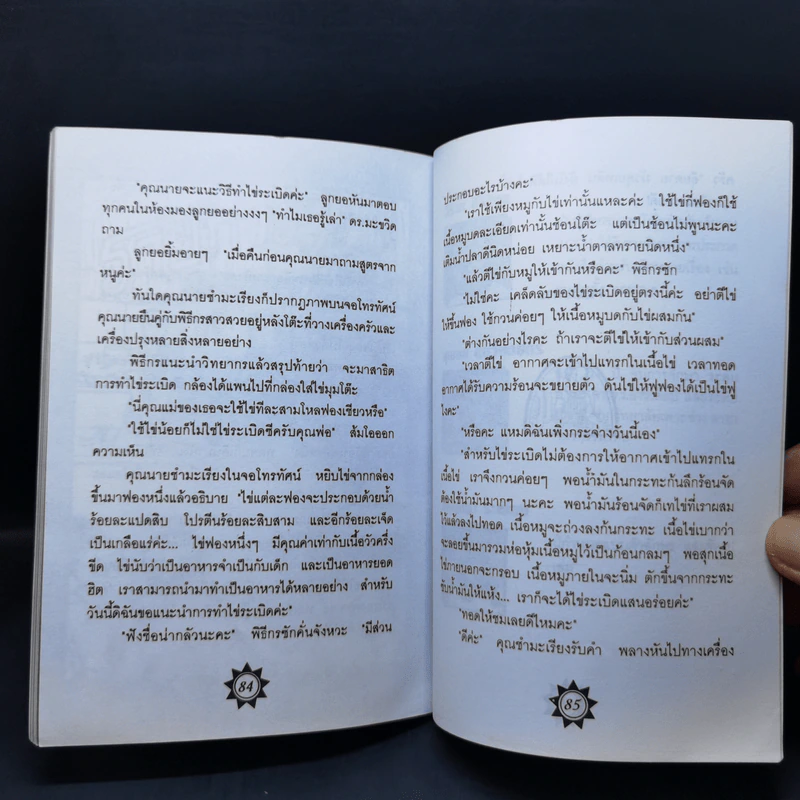 "คุณนายจะแนะวิธีทำไข่ระเบิดค่ะ" ลูกยอหันมาตอบ
ทุกคนในห้องมองลูกยออย่างงงๆ "ทำไมเธอรู้เล่า" ดร.มะขวิด
ถาม
ลูกยอยิ้มอายๆ "เมื่อคืนก่อนคุณนายมาถามสูตรจาก
หนูค่ะ"
ทันใดคุณนายชำมะเรียงก็ปรากฏภาพบนจอโทรทัศน์
คุณนายยืนคู่กับพิธีกรสาวสวยอยู่หลังโต๊ะที่วางเครื่องครัวและ
เครื่องปรุงหลายสิ่งหลายอย่าง
พิธีกรแนะนำวิทยากรแล้วสรุปท้ายว่า จะมาสาธิต
การทำไข่ระเบิด กล้องได้แพนไปที่กล่องใส่ไข่มุมโต๊ะ
"นี่คุณแม่ของเธอจะใช้ไข่ทีละสามโหลฟองเชียวหรือ"
"ใช้ไข่น้อยก็ไม่ใช่ไข่ระเบิดซีครับคุณพ่อ" ส้มโอออก
ความเห็น
คุณนายชำมะเรียงในจอโทรทัศน์ หยิบไข่จากกล่อง
ขึ้นมาฟองหนึ่งแล้วอธิบาย "ไข่แต่ละฟองจะประกอบด้วยน้ำ
ร้อยละแปดสิบ โปรตีนร้อยละสิบสาม และอีกร้อยละเจ็ด
เป็นเกลือแร่ค่ะ... ไข่ฟองหนึ่งๆ มีคุณค่าเท่ากับเนื้อวัวครึ่ง
ขีด ไข่นับว่าเป็นอาหารจำเป็นกับเด็ก และเป็นอาหารยอด
ฮิต เราสามารถนำมาทำเป็นอาหารได้หลายอย่าง สำหรับ
วันนี้ดิฉันขอแนะนำการทำไข่ระเบิดค่ะ"
"ฟังชื่อน่ากลัวนะคะ" พิธีกรซักคั่นจังหวะ "มีส่วน
84
ประกอบอะไรบ้างคะ"
"เราใช้เพียงหมูกับไข่เท่านั้นแหละค่ะ ใช้ไข่กี่ฟองก็ใช้
เนื้อหมูบดละเอียดเท่านั้นช้อนโต๊ะ แต่เป็นช้อนไม่พูนนะคะ
เติมน้ำปลาดีนิดหน่อย เหยาะน้ำตาลทรายนิดหนึ่ง"
"แล้วตีไข่กับหมูให้เข้ากันหรือคะ" พิธีกรซัก
"ไม่ใช่ค่ะ เคล็ดลับของไข่ระเบิดอยู่ตรงนี้ค่ะ อย่าตีไข่
ให้ขึ้นฟอง ใช้กวนค่อยๆ ให้เนื้อหมูบดกับไข่ผสมกัน"
"ต่างกันอย่างไรคะ ถ้าเราจะตีไข่ให้เข้ากับส่วนผสม"
"เวลาตีไข่ อากาศจะเข้าไปแทรกในเนื้อไข่ เวลาทอด
อากาศได้รับความร้อนจะขยายตัว ดันไข่ให้ฟูฟองได้เป็นไข่ฟู
ไงคะ"
"หรือคะ แหมดิฉันเพิ่งกระจ่างวันนี้เอง"
"สำหรับไข่ระเบิดไม่ต้องการให้อากาศเข้าไปแทรกใน
เนื้อไข่ เราจึงกวนค่อยๆ พอน้ำมันในกระทะก้นลึกร้อนจัด
ต้องใช้น้ำมันมากๆ นะคะ พอน้ำมันร้อนจัดก็เทไข่ที่เราผสม
ไว้แล้วลงไปทอด เนื้อหมูจะถ่วงลงก้นกระทะ เนื้อไข่เบากว่า
จะลอยขึ้นมารวมห่อหุ้มเนื้อหมูไว้เป็นก้อนกลมๆ พอสุกเนื้อ
ไข่ภายนอกจะกรอบ เนื้อหมูภายในจะนิ่ม ตักขึ้นจากกระทะ
ซับน้ำมันให้แห้ง... เราก็จะได้ไข่ระเบิดแสนอร่อยค่ะ"
"ทอดให้ชมเลยดีไหมคะ"
"ดีค่ะ" คุณชำมะเรียงรับคำ พลางหันไปทางเครื่อง
85